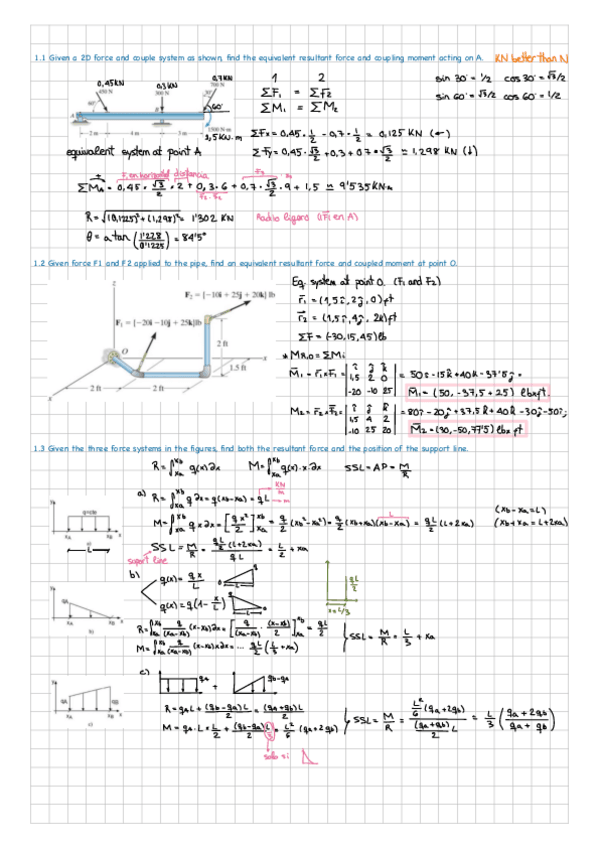 1.1 Given a 2D force and couple system as shown, find the equivalent resultant force and coupling moment acting on A. KN better than N
0,45KN 0,3KN 0,7KN
450 N 300 N 700 N
60° 30° 60°
A B
2 m 4 m 3 m
1500 N·m
1,5 KN·m
1 2
ΣF₁ = ΣF₂
ΣM₁ = ΣM₂
sin 30° = 1/2 cos 30° = √3/2
sin 60° = √3/2 cos 60° = 1/2
ΣFx = 0,45·1/2 - 0,7·1/2 = 0,125 KN (←)
equivalent system at point A
ΣFy = 0,45·√3/2 + 0,3 + 0,7·√3/2 ≃ 1,298 KN (↓)
F₁ en horizontal distancia
ΣM_A = 0,45·√3/2·2 + 0,3·6 + 0,7·√3/2·9 + 1,5 ≃ 9'535KNm
R = √((0,1225)² + (1,298)²) = 1'302 KN
θ = atan(1'228/0'1225) = 84'5°
1.2 Given force F1 and F2 applied to the pipe, find an equivalent resultant force and coupled moment at point O.
F₂ = {−10i + 25j + 20k} lb
F₁ = {−20i −10j + 25k} lb
z O x y
2 ft 1.5 ft
2 ft 2 ft
Eq. system at point O. (F₁ and F₂)
r₁ = (1,5î, 2ĵ, 0) ft
r₂ = (1,5î, 4ĵ, 2k) ft
ΣF = (-30,15,45) lb
* MR,O = ΣMi
M₁ = r₁×F₁ = | î ĵ k | 1,5 2 0 | -20 -10 25 | = 50î - 15k + 40k - 37'5ĵ =
M₁ = (50, -37,5 + 25) lbxft.
M₂ = r₂×F₂ = | î ĵ k | 1,5 4 2 | -10 25 20 | = 80î - 20ĵ + 37,5k + 40k - 30ĵ - 50î;
M₂ = (30, -50, 77'5) lbx ft
1.3 Given the three force systems in the figures, find both the resultant force and the position of the support line.
R = ∫xa^xb q(x)∂x M = ∫xa^xb q(x)·x·∂x SSL = AP = M/R
KN/m
a) R = ∫xa^xb q ∂x = q(xb-xa) = qL → m
q=cte
M = ∫xa^xb q x ∂x = [q x²/2]xa^xb = q/2 (xb²-xa²) = q/2 (xb+xa)(xb-xa) = qL/2 (L+2xa)
L
(xb - xa = L)
(xb + xa = L+2xa)
SSL = M/R = (qL/2 (L+2xa))/(qL) = L/2 + xa
b) q(x) = q x/L
q(x) = q(1 - x/L)
qL/2
x = L/3
R = ∫xa^xb q/(xa-xb) (x-xb)∂x = [q/(xa-xb) · (x-xb)²/2]xa^xb = qL/2
SSL = M/R = L/3 + xa
M = ∫xa^xb q/(xa-xb) (x-xb)x∂x = ... qL/2 (L/3 + xa)
c) qa + qb-qa
R = qaL + (qb-qa)L/2 = (qa+qb)L/2
M = qa·L·L/2 + (qb-qa)L/2 = L²/6 (qa+2qb)
SSL = M/R = (L²/6 (qa+2qb))/((qa+qb)/2 L) = L/3 ((qa+2qb)/(qa+qb))